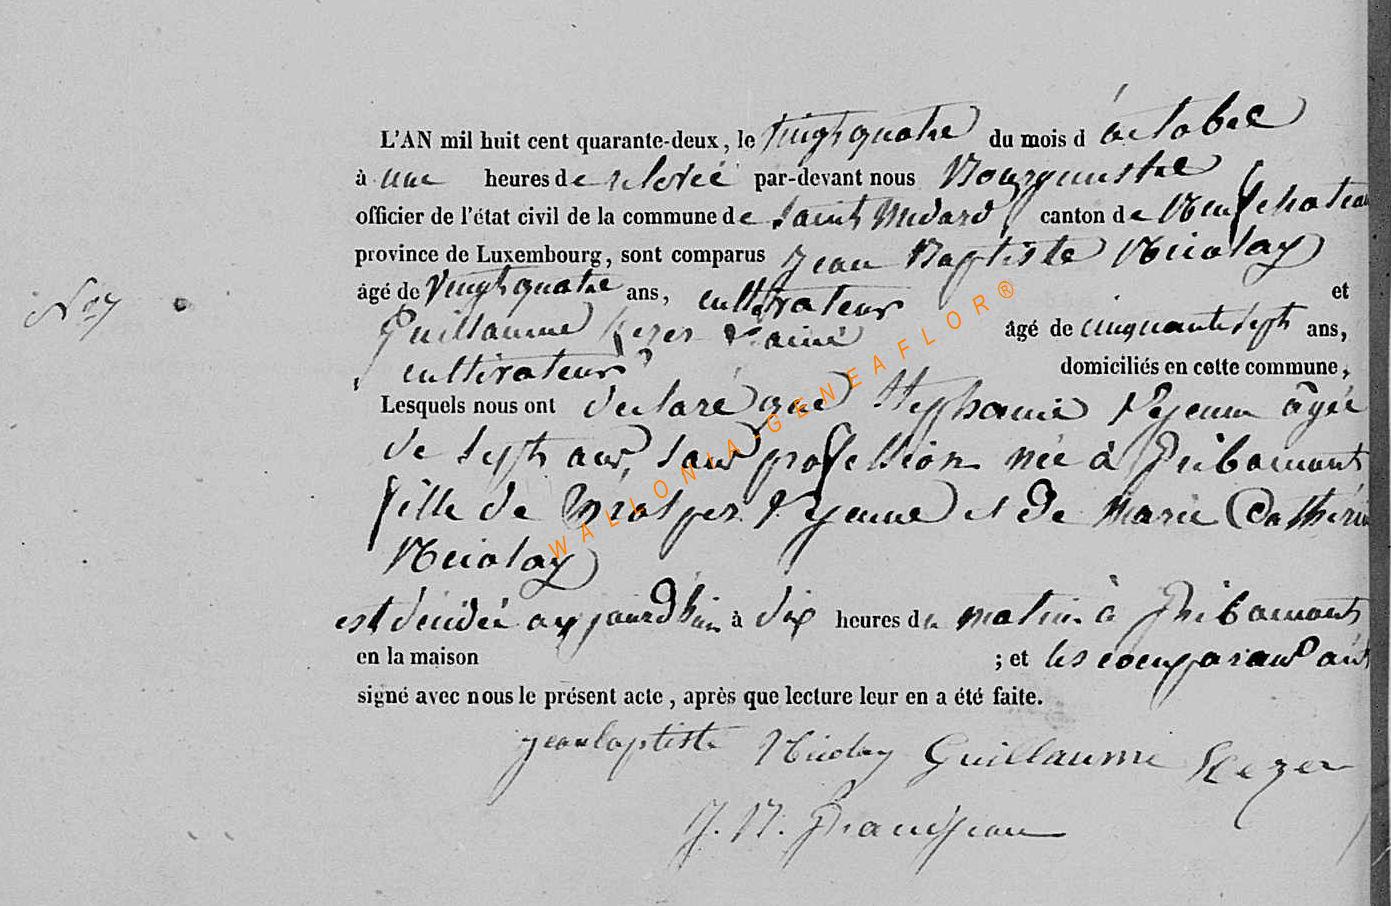 L'AN mil huit cent quarante-deux, le vingtquatre du mois d'octobre
à une heures de relevée par-devant nous Bourgmestre
officier de l'état civil de la commune de Saint Médard, canton de Neufchateau
province de Luxembourg, sont comparus Jean Baptiste Nicolay
âgé de vingtquatre ans, cultivateur et
N° 7
Guillaume l'ainé âgé de cinquante sept ans,
cultivateur domiciliés en cette commune,
Lesquels nous ont déclaré que Stephanie agée
de sept ans, sans profession née à Gribomont
fille de Prosper et de Marie Catherine
Nicolay
est décédée aujourd'hui à dix heures du matin à Gribomont
en la maison ; et les comparans ont
signé avec nous le présent acte, après que lecture leur en a été faite.
jean baptiste Nicolay Guillaume
WALLONIA-GENEAFLOR®